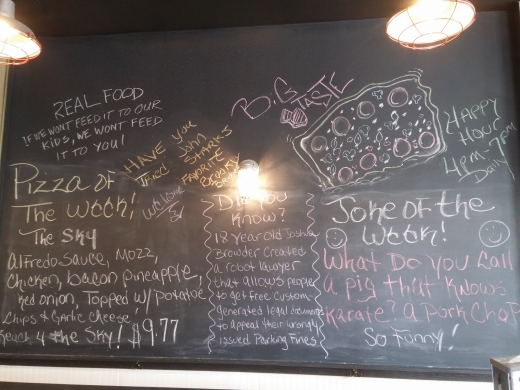 REAL FOOD
IF WE WONT FEED IT TO OUR
KIDS, WE WONT FEED
IT TO YOU!
HAVE you
Tried
John
STARKS
FAVORITE
BIG
TASTE
HAPPY
Hour
4pm-7pm
Daily
Pizza of
The Week!
we love
The Sky
Alfredo Sauce, Mozz,
Chicken, bacon pineapple,
Red onion, Topped w/ Potatoe
Chips & Garlic cheese!
Reach 4 the Sky! $9.77
Did you
Know?
18 year old Joshua
Browder Created
a robot lawyer
that allows people
to get Free Custom
generated legal documents
to appeal their wrongly
issued Parking Fines
Joke of the
Week!
What Do You Call
a pig that knows
Karate? a Pork Chop
So Funny!